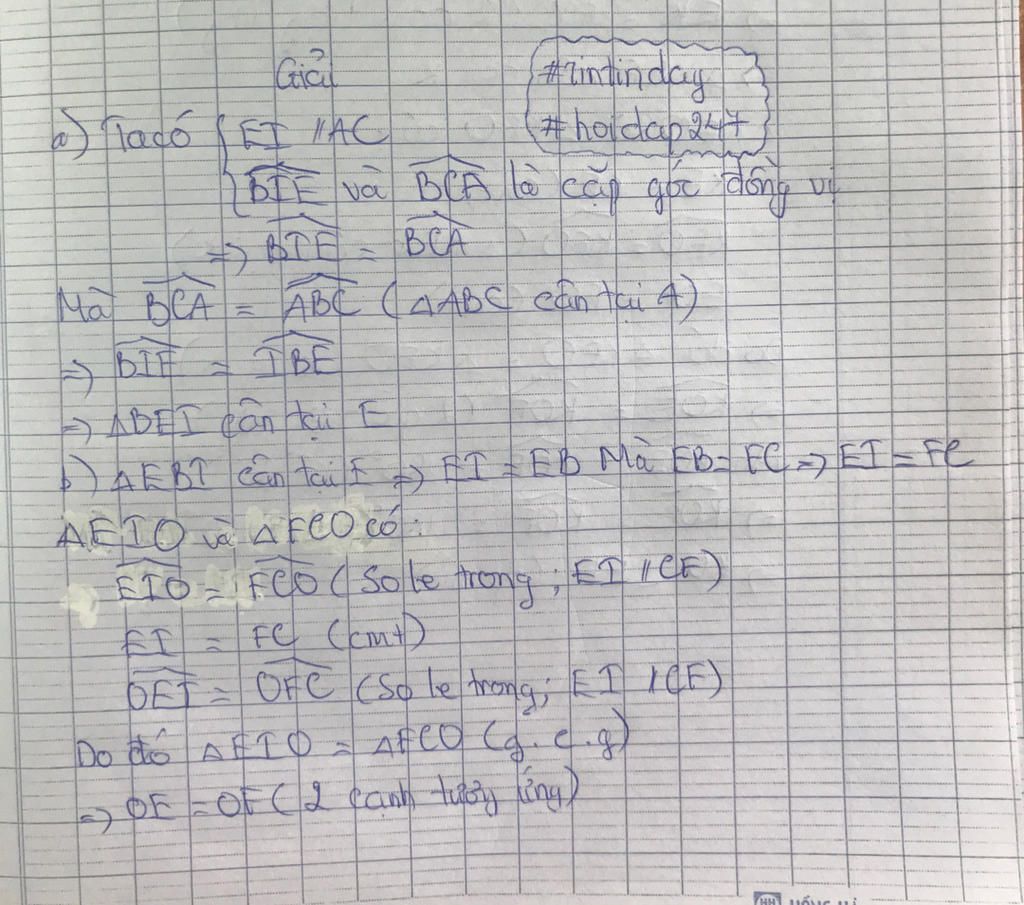 Giải
#rintinday
#hoidap247
a) Ta có { EI // AC
BIE và BCA là cặp góc đồng vị
=> BIE = BCA
Mà BCA = ABC (ΔABC cân tại A)
=> BIE = IBE
=> ΔBEI cân tại E
b) ΔEBI cân tại E => EI = EB Mà EB = FC => EI = FC
ΔEIO và ΔFCO có:
EIO = FCO (So le trong; EI // CF)
EI = FC (cmt)
OEI = OFC (So le trong; EI // CF)
Do đó ΔEIO = ΔFCO (g.c.g)
=> OE = OF (2 cạnh tương ứng)